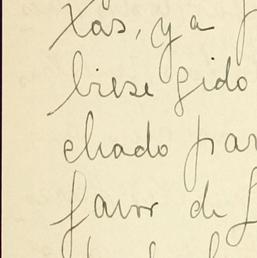 xas, y a
biese gido
chado par
favor de